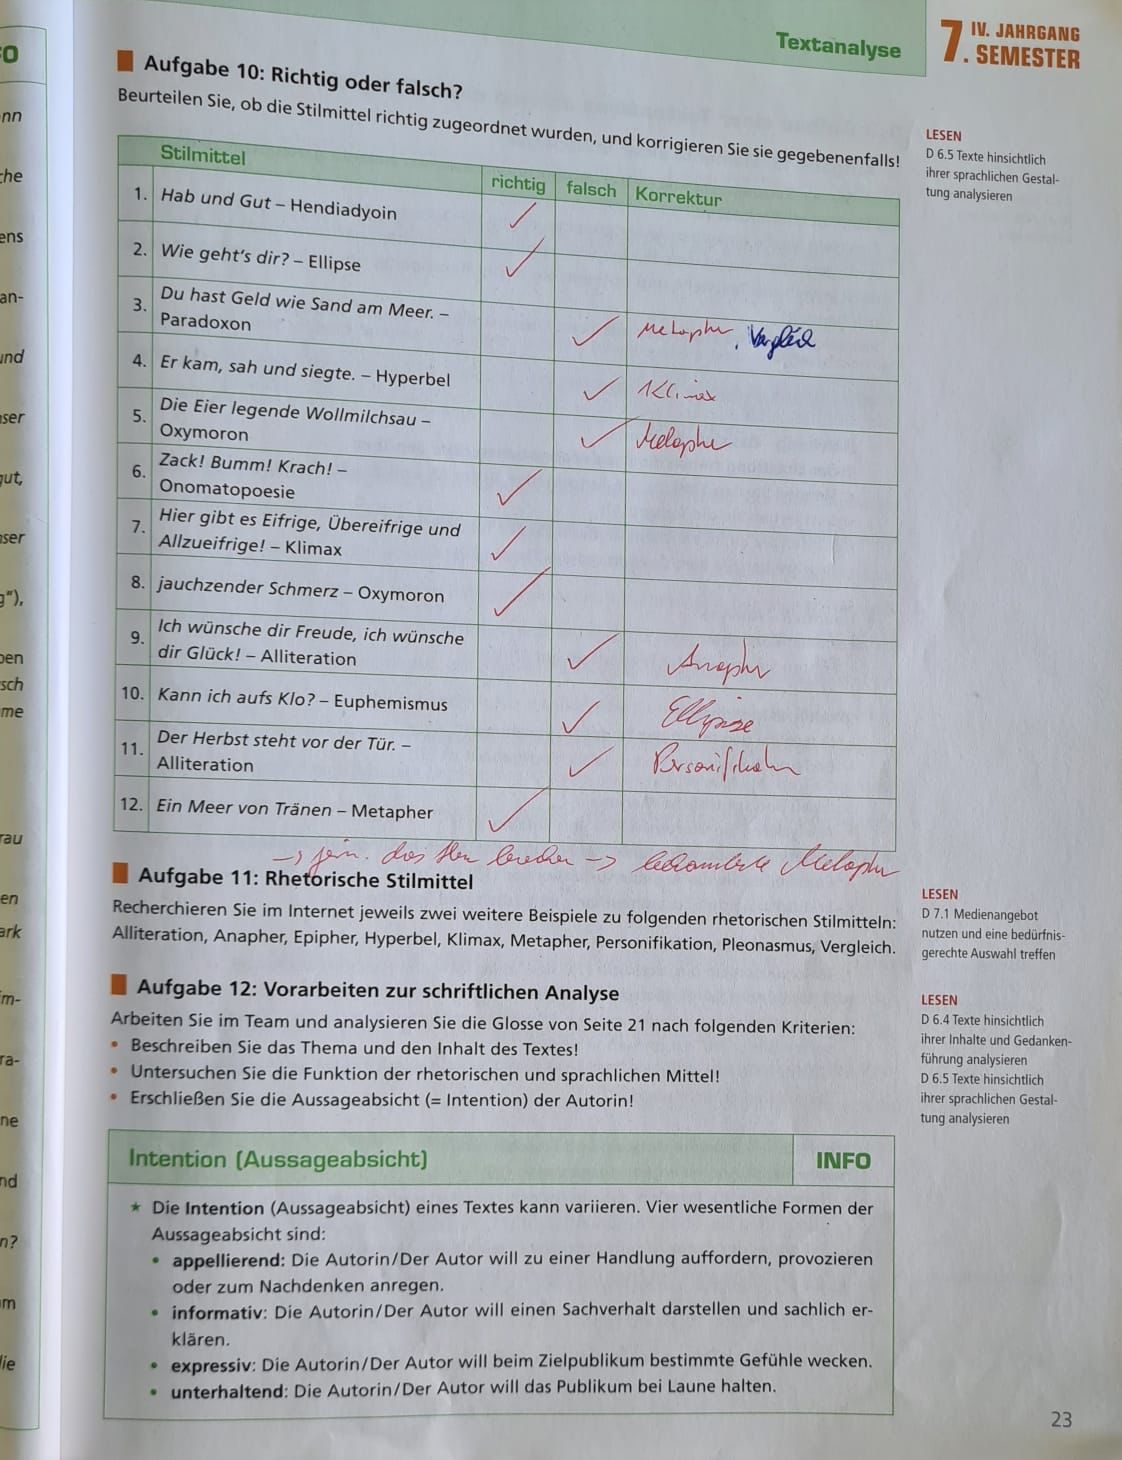 Textanalyse
7. IV. JAHRGANG
SEMESTER
Aufgabe 10: Richtig oder falsch?
Beurteilen Sie, ob die Stilmittel richtig zugeordnet wurden, und korrigieren Sie sie gegebenenfalls!
LESEN
D 6.5 Texte hinsichtlich
ihrer sprachlichen Gestal-
tung analysieren
Stilmittel richtig falsch Korrektur
1. Hab und Gut – Hendiadyoin ✓
2. Wie geht's dir? – Ellipse ✓
3. Du hast Geld wie Sand am Meer. –
Paradoxon ✓ Metapher, Vergleich
4. Er kam, sah und siegte. – Hyperbel ✓ Klimax
5. Die Eier legende Wollmilchsau –
Oxymoron ✓ Metapher
6. Zack! Bumm! Krach! –
Onomatopoesie ✓
7. Hier gibt es Eifrige, Übereifrige und
Allzueifrige! – Klimax ✓
8. jauchzender Schmerz – Oxymoron ✓
9. Ich wünsche dir Freude, ich wünsche
dir Glück! – Alliteration ✓ Anapher
10. Kann ich aufs Klo? – Euphemismus ✓ Ellipse
11. Der Herbst steht vor der Tür. –
Alliteration ✓ Personifikation
12. Ein Meer von Tränen – Metapher ✓
→ das → Metapher
Aufgabe 11: Rhetorische Stilmittel
Recherchieren Sie im Internet jeweils zwei weitere Beispiele zu folgenden rhetorischen Stilmitteln:
Alliteration, Anapher, Epipher, Hyperbel, Klimax, Metapher, Personifikation, Pleonasmus, Vergleich.
LESEN
D 7.1 Medienangebot
nutzen und eine bedürfnis-
gerechte Auswahl treffen
Aufgabe 12: Vorarbeiten zur schriftlichen Analyse
Arbeiten Sie im Team und analysieren Sie die Glosse von Seite 21 nach folgenden Kriterien:
• Beschreiben Sie das Thema und den Inhalt des Textes!
• Untersuchen Sie die Funktion der rhetorischen und sprachlichen Mittel!
• Erschließen Sie die Aussageabsicht (= Intention) der Autorin!
LESEN
D 6.4 Texte hinsichtlich
ihrer Inhalte und Gedanken-
führung analysieren
D 6.5 Texte hinsichtlich
ihrer sprachlichen Gestal-
tung analysieren
Intention (Aussageabsicht) INFO
★ Die Intention (Aussageabsicht) eines Textes kann variieren. Vier wesentliche Formen der
Aussageabsicht sind:
• appellierend: Die Autorin/Der Autor will zu einer Handlung auffordern, provozieren
oder zum Nachdenken anregen.
• informativ: Die Autorin/Der Autor will einen Sachverhalt darstellen und sachlich er-
klären.
• expressiv: Die Autorin/Der Autor will beim Zielpublikum bestimmte Gefühle wecken.
• unterhaltend: Die Autorin/Der Autor will das Publikum bei Laune halten.
23